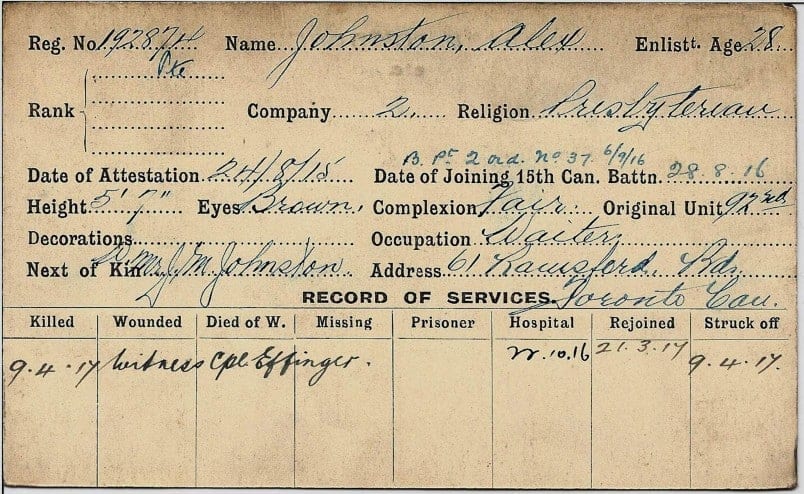 Reg. No. 192874 Name Johnston, Alex Enlistt. Age 28
Pte
Rank Company 2. Religion Presbyterian
B. Pt 2 ord. No 37. 6/9/16
Date of Attestation 24/8/15 Date of Joining 15th Can. Battn. 28.8.16
Height 5' 7" Eyes Brown. Complexion Fair. Original Unit 92nd
Decorations Occupation Waiter
Next of Kin Mr J. M Johnston. Address 61 Rd.
RECORD OF SERVICES. Toronto Can.
Killed Wounded Died of W. Missing Prisoner Hospital Rejoined Struck off
9.4.17 Witness Cpl Effinger. 10.16 21.3.17 9.4.17.